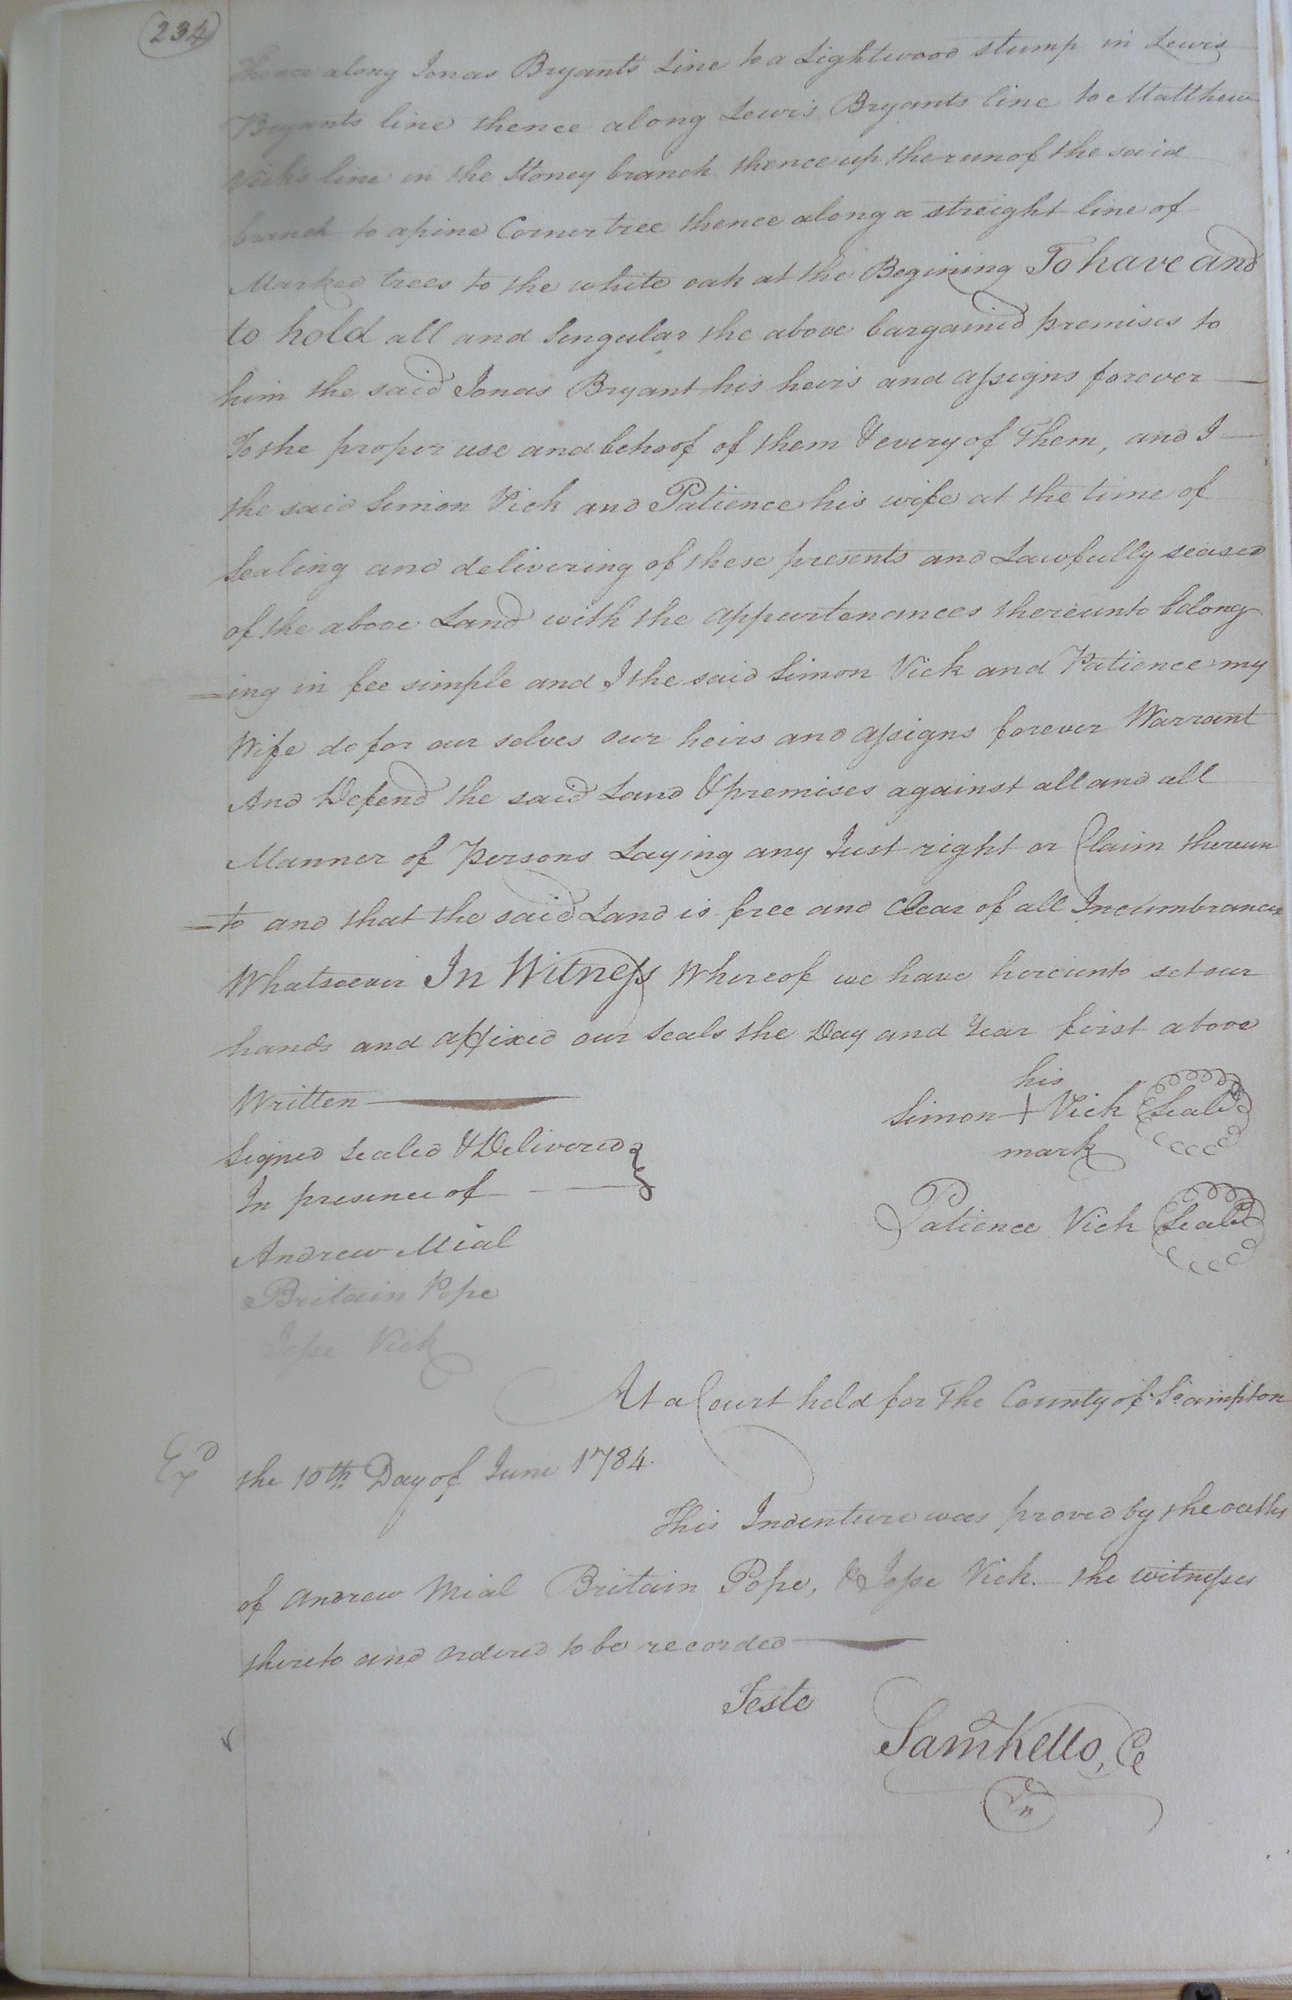 234
Thence along Jonas Bryants Line to a Lightwood stump in Lewis
Bryants line thence along Lewis Bryants line to Matthew
Vicks line in the Stoney branch thence up the run of the said
branch to a pine Corner tree thence along a streight line of
Marked trees to the white oak at the Begining To have and
to hold all and Singular the above bargained premises to
him the said Jonas Bryant his heirs and assigns forever
To the proper use and behoof of them & every of Them, and I
the said Simon Vick and Patience his wife at the time of
Sealing and delivering of these presents and Lawfully seased
of the above Land with the appurtenances thereunto belong
=ing in fee simple and I the said Simon Vick and Patience my
Wife do for our selves our heirs and assigns forever Warrant
And Defend the said Land & premises against all and all
Manner of Persons Laying any Just right or Claim thereun
=to and that the said Land is free and Clear of all Incumbrances
Whatsoever In Witness Whereof we have hereunto set our
hands and affixed our Seals the Day and Year first above
Written
his
Simon + Vick Seal
mark
Signed Sealed & Delivered
In presence of
Patience Vick Seal
Andrew Mial
Britain Pope
Jesse Vick
At a Court held for The County of So.ampton
Exd
the 10th Day of June 1784.
This Indenture was proved by the oaths
of Andrew Mial Britain Pope, & Jesse Vick the witnesses
thereto and ordered to be recorded
Teste
Saml Kello, Ce